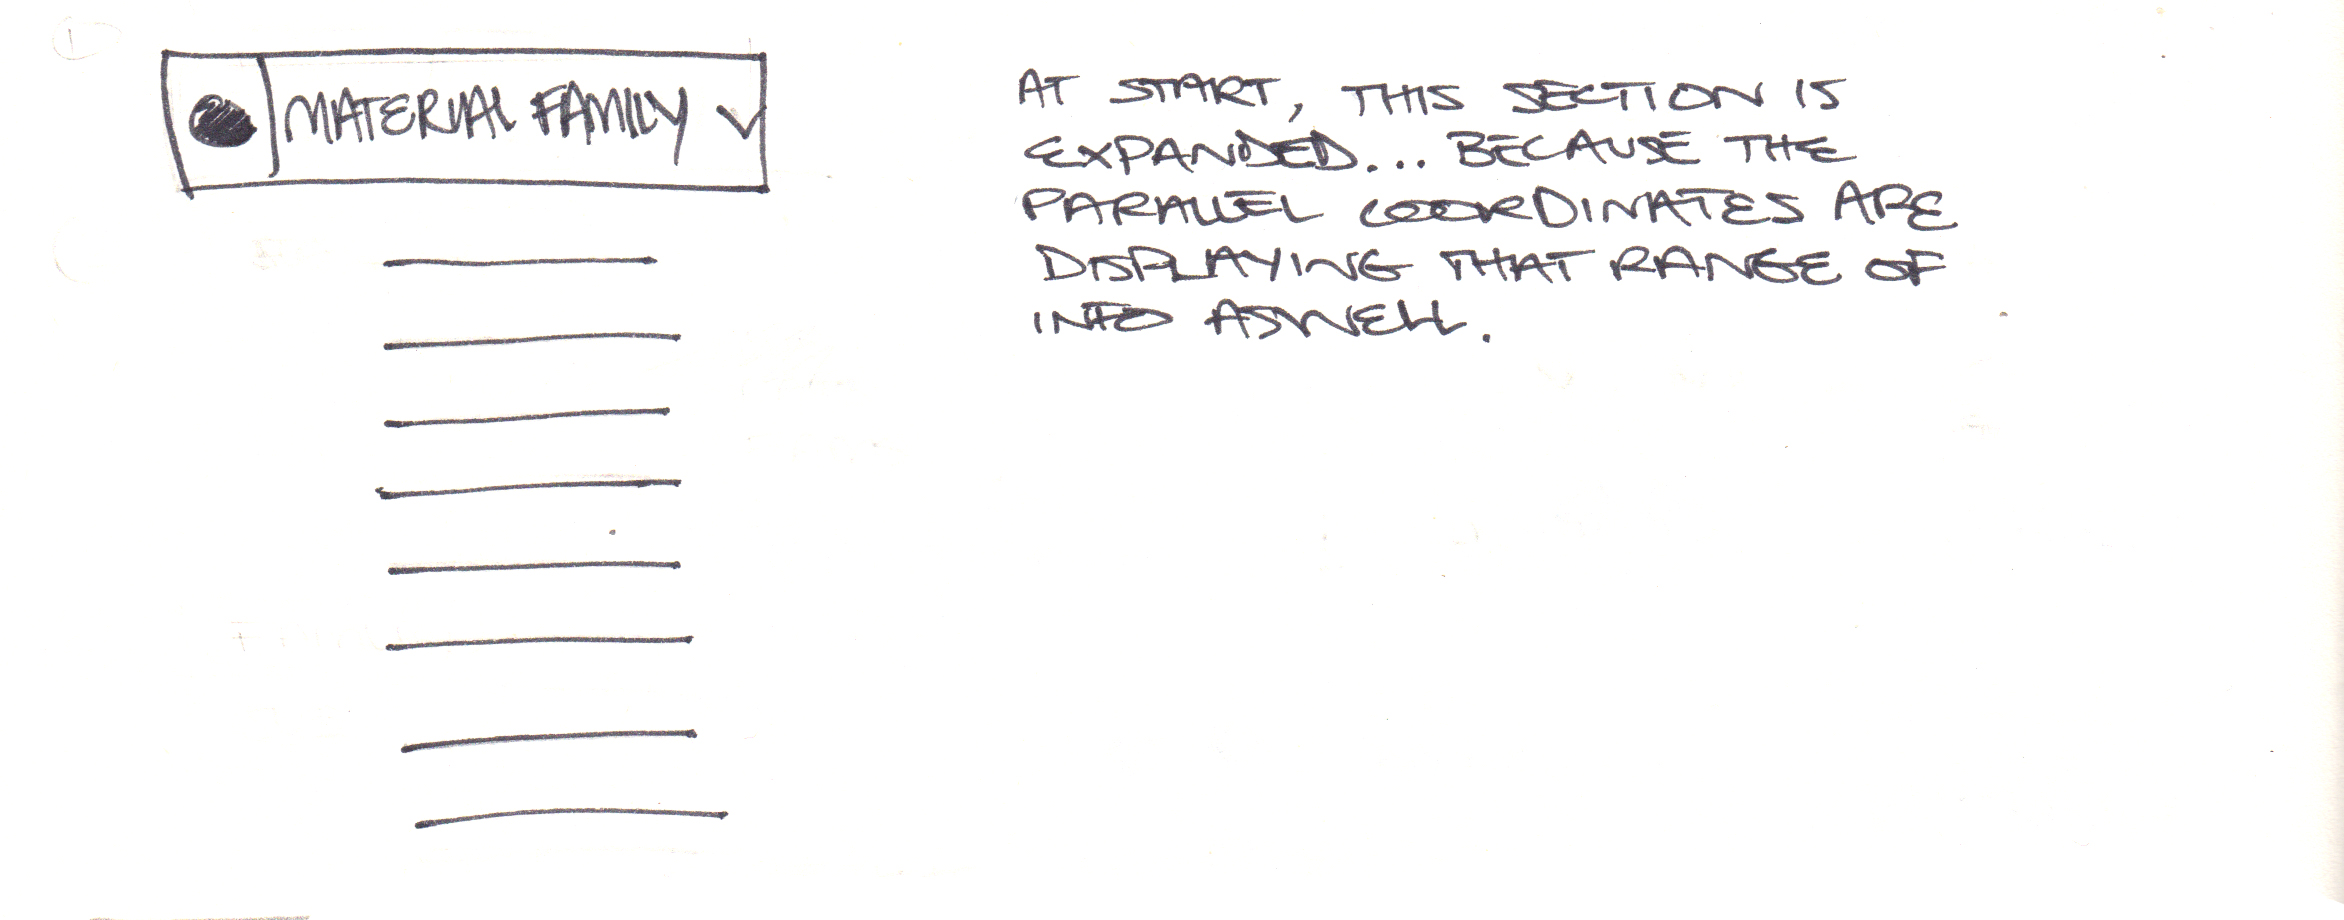 MATERIAL FAMILY
AT START, THIS SECTION IS
EXPANDED... BECAUSE THE
PARALLEL COORDINATES ARE
DISPLAYING THAT RANGE OF
INFO ASWELL.